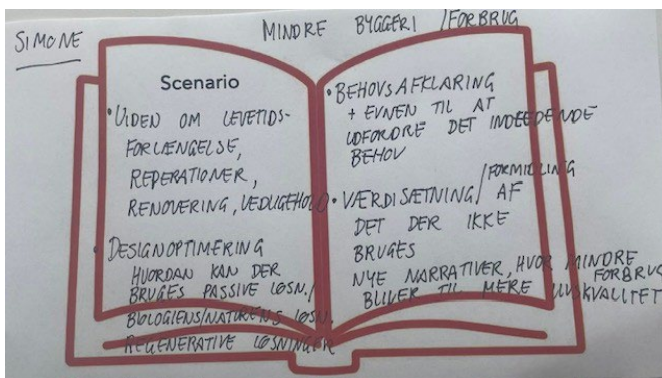 SIMONE
MINDRE BYGGERI / FORBRUG
Scenario
• VIDEN OM LEVETIDS-
FORLÆNGELSE,
REPERATIONER,
RENOVERING, VEDLIGEHOLD
• DESIGNOPTIMERING
HVORDAN KAN DER
BRUGES PASSIVE LØSN./
BIOLOGIENS/NATURENS LØSN.
REGENERATIVE LØSNINGER
• BEHOVSAFKLARING
+ EVNEN TIL AT
UDFORDRE DET INDLEDENDE
BEHOV
• VÆRDISÆTNING / FORMIDLING
AF
DET DER IKKE
BRUGES
NYE NARRATIVER, HVOR MINDRE
FORBRUG
BLIVER TIL MERE LIVSKVALITET